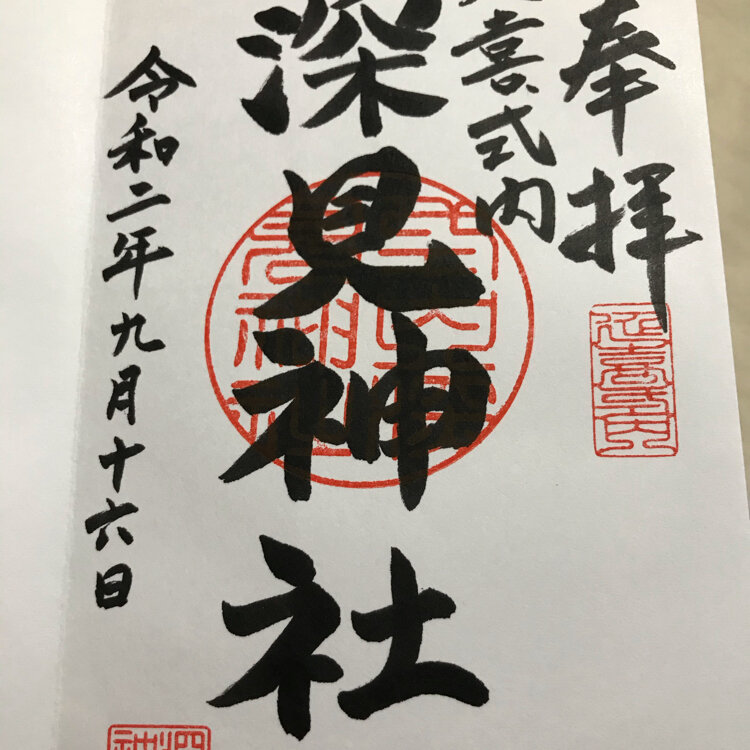 奉拝
喜式内
深見神社
令和二年九月十六日
延喜式内